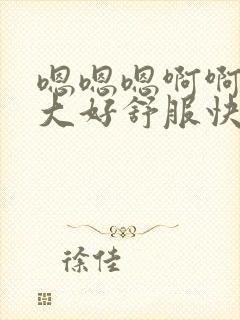 嗯嗯嗯啊啊
大好舒服快
徐佳